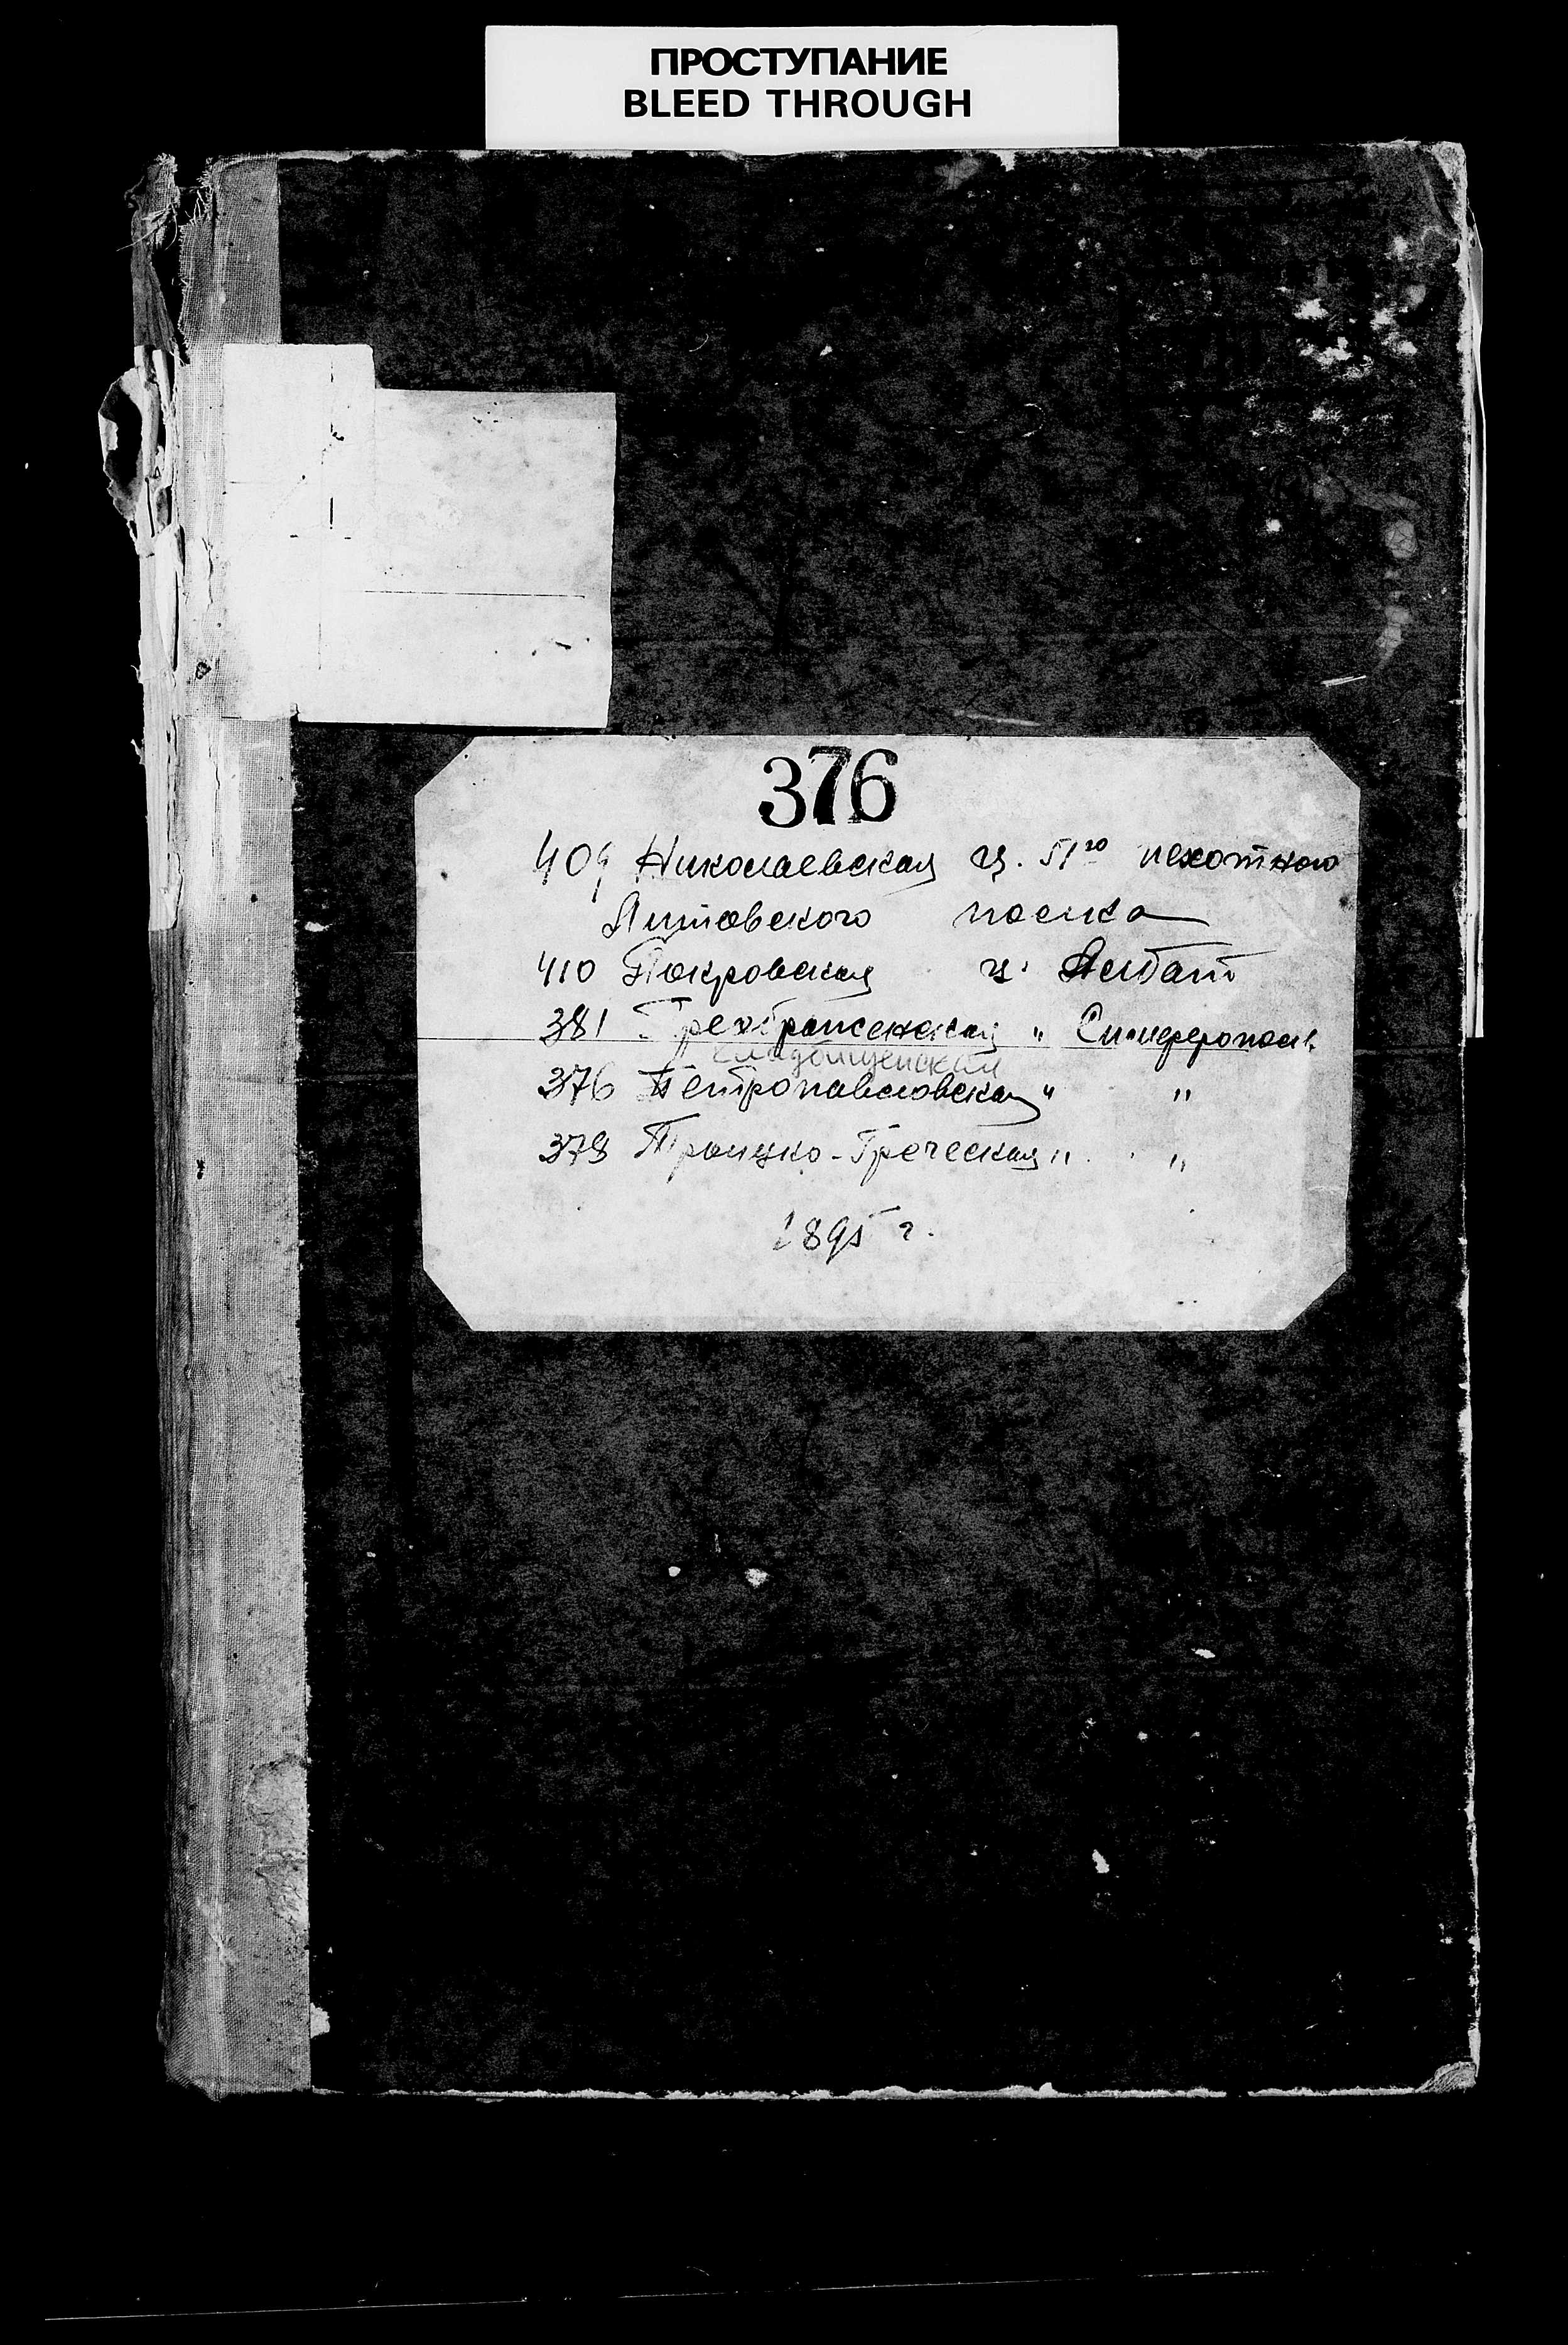 ПРОСТУПАНИЕ
BLEED THROUGH
376
409 Николаевская ц. 51го пехотного
Литовского полка
410 Покровская ц. Албат
381 Преображенская " Симферополь
Кладбищенская
376 Петропавловская " "
378 Троицко-Греческая " "
1895 г.